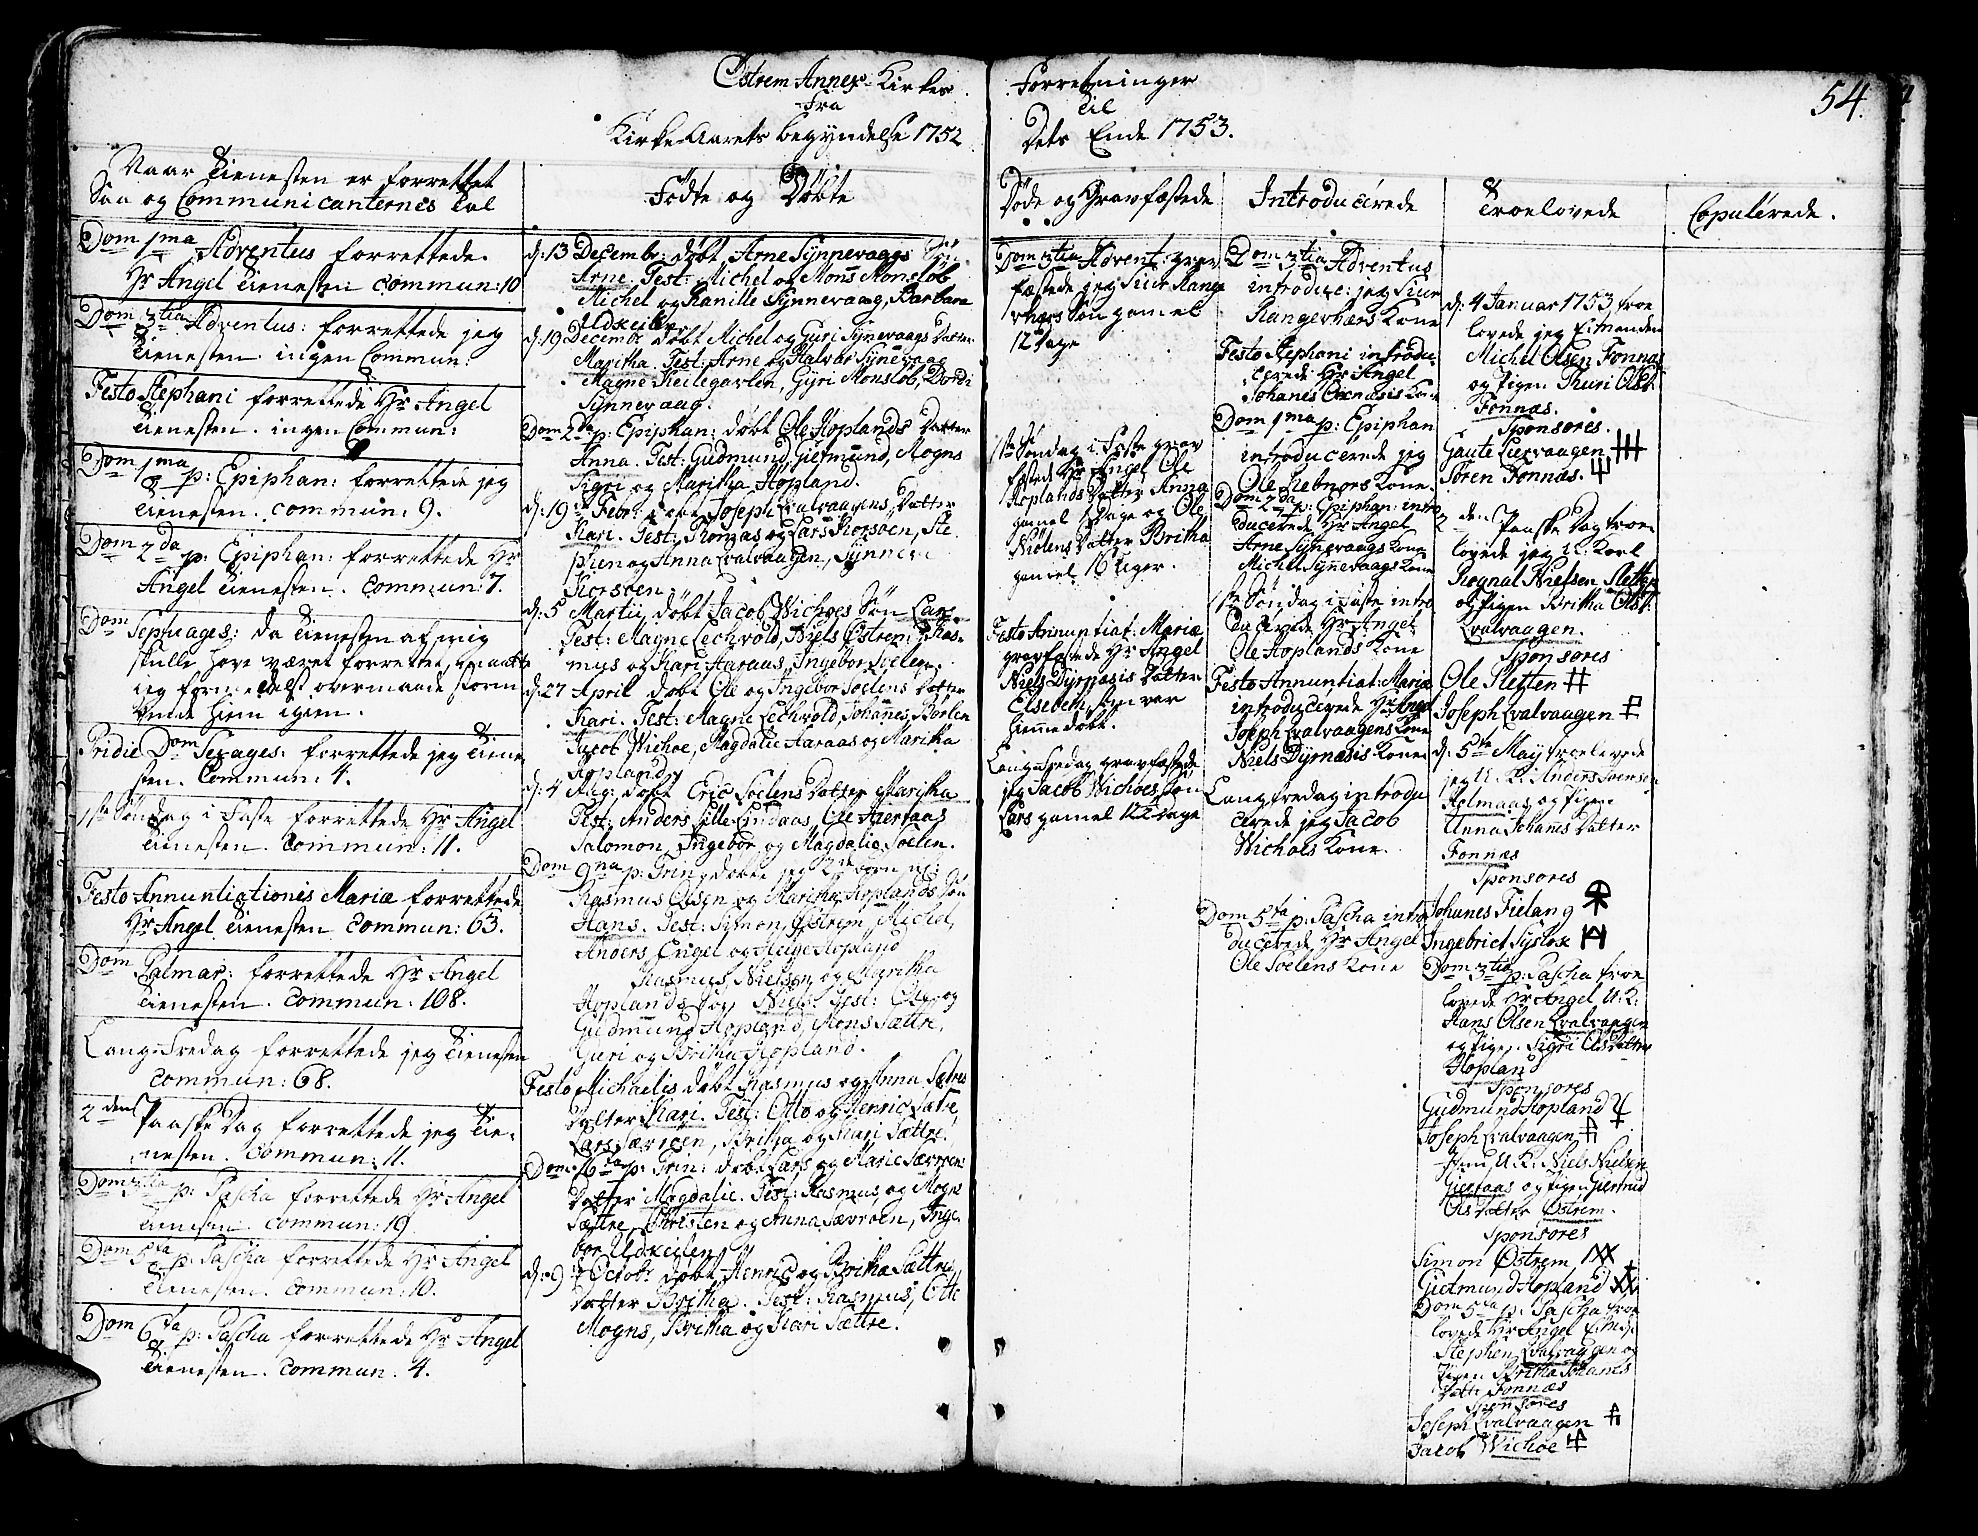 Østrem Annex Kirkes Forretninger
fra til
Kirke-Aarets begyndelse 1752 Dets Ende 1753.
54.
Naar Tienesten er forrettet
Saa og Communicanternes Tal
Dom 1ma Adventus forrettede
Hr Angel Tienesten commun: 10
Dom 3tia Adventus: forrettede jeg
Tienesten. ingen Commun:
Festo Stephani forrettede Hr Angel
Tienesten. ingen Commun:
Dom 1ma p: Epiphan: forrettede jeg
Tienesten. commun: 9.
Dom 2da p: Epiphan: forrettede Hr
Angel Tienesten. commun: 7.
Dom Septuages: da Tienesten af mig
skulle have været forrettet, maatte
jeg formedelst overmaade storm
vende hiem igien.
Pridie Dom Sexages: forrettede jeg Tiene
sten. Commun: 4.
1ste Søndag i Faste forrettede Hr Angel
Tienesten. Commun: 11.
Festo Annuntiationis Mariæ forrettede
Hr Angel Tienesten commun: 63.
Dom Palmar: forrettede Hr Angel
Tienesten. commun: 108.
Lang-Fredag forrettede jeg Tienesten
commun: 68.
2den Paaske Dag forrettede jeg Tie-
nesten. Commun: 11.
Dom 3tia p: Pascha forrettede Hr Angel
Tienesten. commun: 19.
Dom 5ta p: Pascha forrettede Hr Angel
Tienesten. commun: 10.
Dom 6ta p: Pascha forrettede Hr Angel
Tienesten. commun: 4.
Fødte og Døbte
d: 13 Decembr: døbt Arne Synnevaags Søn
Arne. Test: Michel og Mons Monsløb
Michel og Ranille Synnevaag, Barbara
Udkeilen
d: 19 Decembr døbt Michel og Guri Synnevaags Datter
Maritha. Test: Arne og Halvor Synnevaag
Magne Keilegavlen, Gyri Monsløb, Dordi
Synnevaag.
Dom 2da p: Epiphan: døbt Ole Hoplands Datter
Anna. Test: Gudmund, Giermund, Mogns
Sigri og Maritha Hopland.
d: 19 Febr: døbt Joseph Qvalvaagens Datter
Kari. Test: Thomas og Lars Korsøen, Ste
phen og Anna Qvalvaagen, Synneve
Korsøen
d: 5 Martii døbt Jacob Wichoes Søn Lars.
Test: Magne Lechvold, Niels Østrem, Ras-
mus og Kari Aaraas, Ingebor Soelen.
d: 27 April døbt Ole og Ingebor Soelens Datter
Kari. Test: Magne Lechvold, Johannes Børlen
Jacob Wichoe, Magdalie Aaraas og Maritha
Hopland
d: 4 Aug: døbt Eric Soelens Datter Maritha
Test: Anders Lille-Lindaas, Ole Giertaas
Salomon, Ingebor og Magdalie Soelen.
Dom 9na p: Trin: døbte jeg 2de børn nl:
Rasmus Olsen og Maritha Hoplands Søn
Hans. Test: Simon Østrem, Michel
Anders, Engel og Helge Hopland
Rasmus Nielsen og Maritha
Hoplands Søn Niels. Test: Ole og
Gudmund Hopland, Mons Sættre,
Guri og Britha Hopland.
Festo Michaelis døbt Rasmus og Anna Sætres
Datter Kari. Test: Otto og Henric Sætre,
Lars Sævrøen, Britha og Kari Sættre.
Dom: 16ta p: Trin: døbt Lars og Marie Sævrøens
Datter Magdalie. Test: Rasmus og Mogns
Sættre, Christen og Anna Sævrøen, Inge
bor Udkeilen
d: 9 Octobr døbt Henric og Britha Sættres
Datter Britha. Test: Rasmus, Otte
Mogns, Britha og Kari Sættre.
Døde og Gravfæstede
Dom 3tia Advent: grav
fæstede jeg Siur Range
vhærs Søn gamel
12 Dage
1ste Søndag i Faste grav
fæsted Hr Angel Ole
Hoplands Datter Anna
gamel Dage og Ole
Niølens Datter Britha
gamel 16 uger.
Festo Annuntiat: Mariæ
gravfæstede Hr Angel
Niels Dyrnæsis Datter
Elsebeth, som var
hiemedøbt.
Lang-Fredag gravfæstede
jeg Jacob Wichoes Søn
Lars gamel Dage
Introducerede
Dom 3tia Adventus
introduc: jeg Siur
Rangevhærs Kone
Festo Stephani introdu-
cerede Hr Angel
Johanes Ternæsis Kone
Dom 1ma p: Epiphan
introducerede jeg
Ole Kone.
Dom 2da p: Epiphan: intro
ducerede Hr Angel
Arne Synnevaags Kone
Michel Synnevaags Kone
1ste Søndag i Faste intro
ducerede Hr Angel
Ole Hoplands Kone
Festo Annuntiat: Mariæ
introducerede Hr Angel
Joseph Qvalvaagens Kone
Niels Dyrnæsis Kone
Langfredag introdu
cerede jeg Jacob
Wichoes Kone.
Dom 5ta p: Pascha intro
ducerede Hr Angel
Ole Soelens Kone
Troelovede
d: 4 Januar 1753 troe
lovede jeg Enkemanden
Michel Olsen Fonnæs
og Pigen Thuri Olsd:
Fonnæs.
Sponsores.
Gaute Liervaagen
Søren Fonnæs.
2den Paaske Dag troe
lovede jeg U: Karl
Rognal Nielsen Sletten
og Pigen Britha Olsd:
Qvalvaagen.
Sponsores
Ole Sletten
Joseph Qvalvaagen
d: 5te May troelovede
jeg U: K: Anders Svensen
Holmaas og Pigen
Anna Johanes Datter
Fonnæs
Sponsores
Johanes Fielang
Ingebrict Syslax
Dom 3tia p: Pascha troe
lovede Hr Angel U: K:
Hans Olsen Qvalvaagen
og Pigen Sigri Olsdatter
Hopland
Sponsores
Gudmund Hopland
Joseph Qvalvaagen
U: K: Niels Nielsen
Giertaas og Pigen Giertrud
Ols Datter Østrem.
Sponsores
Simon Østrem
Gudmund Hopland
Dom 5ta p: Pascha troe
lovede Hr Angel
Stephen Qvalvaagen og
Pigen Britha Johanes
Datter Fonnæs
Sponsores
Joseph Qvalvaagen
Jacob Wichoe
Copulerede.